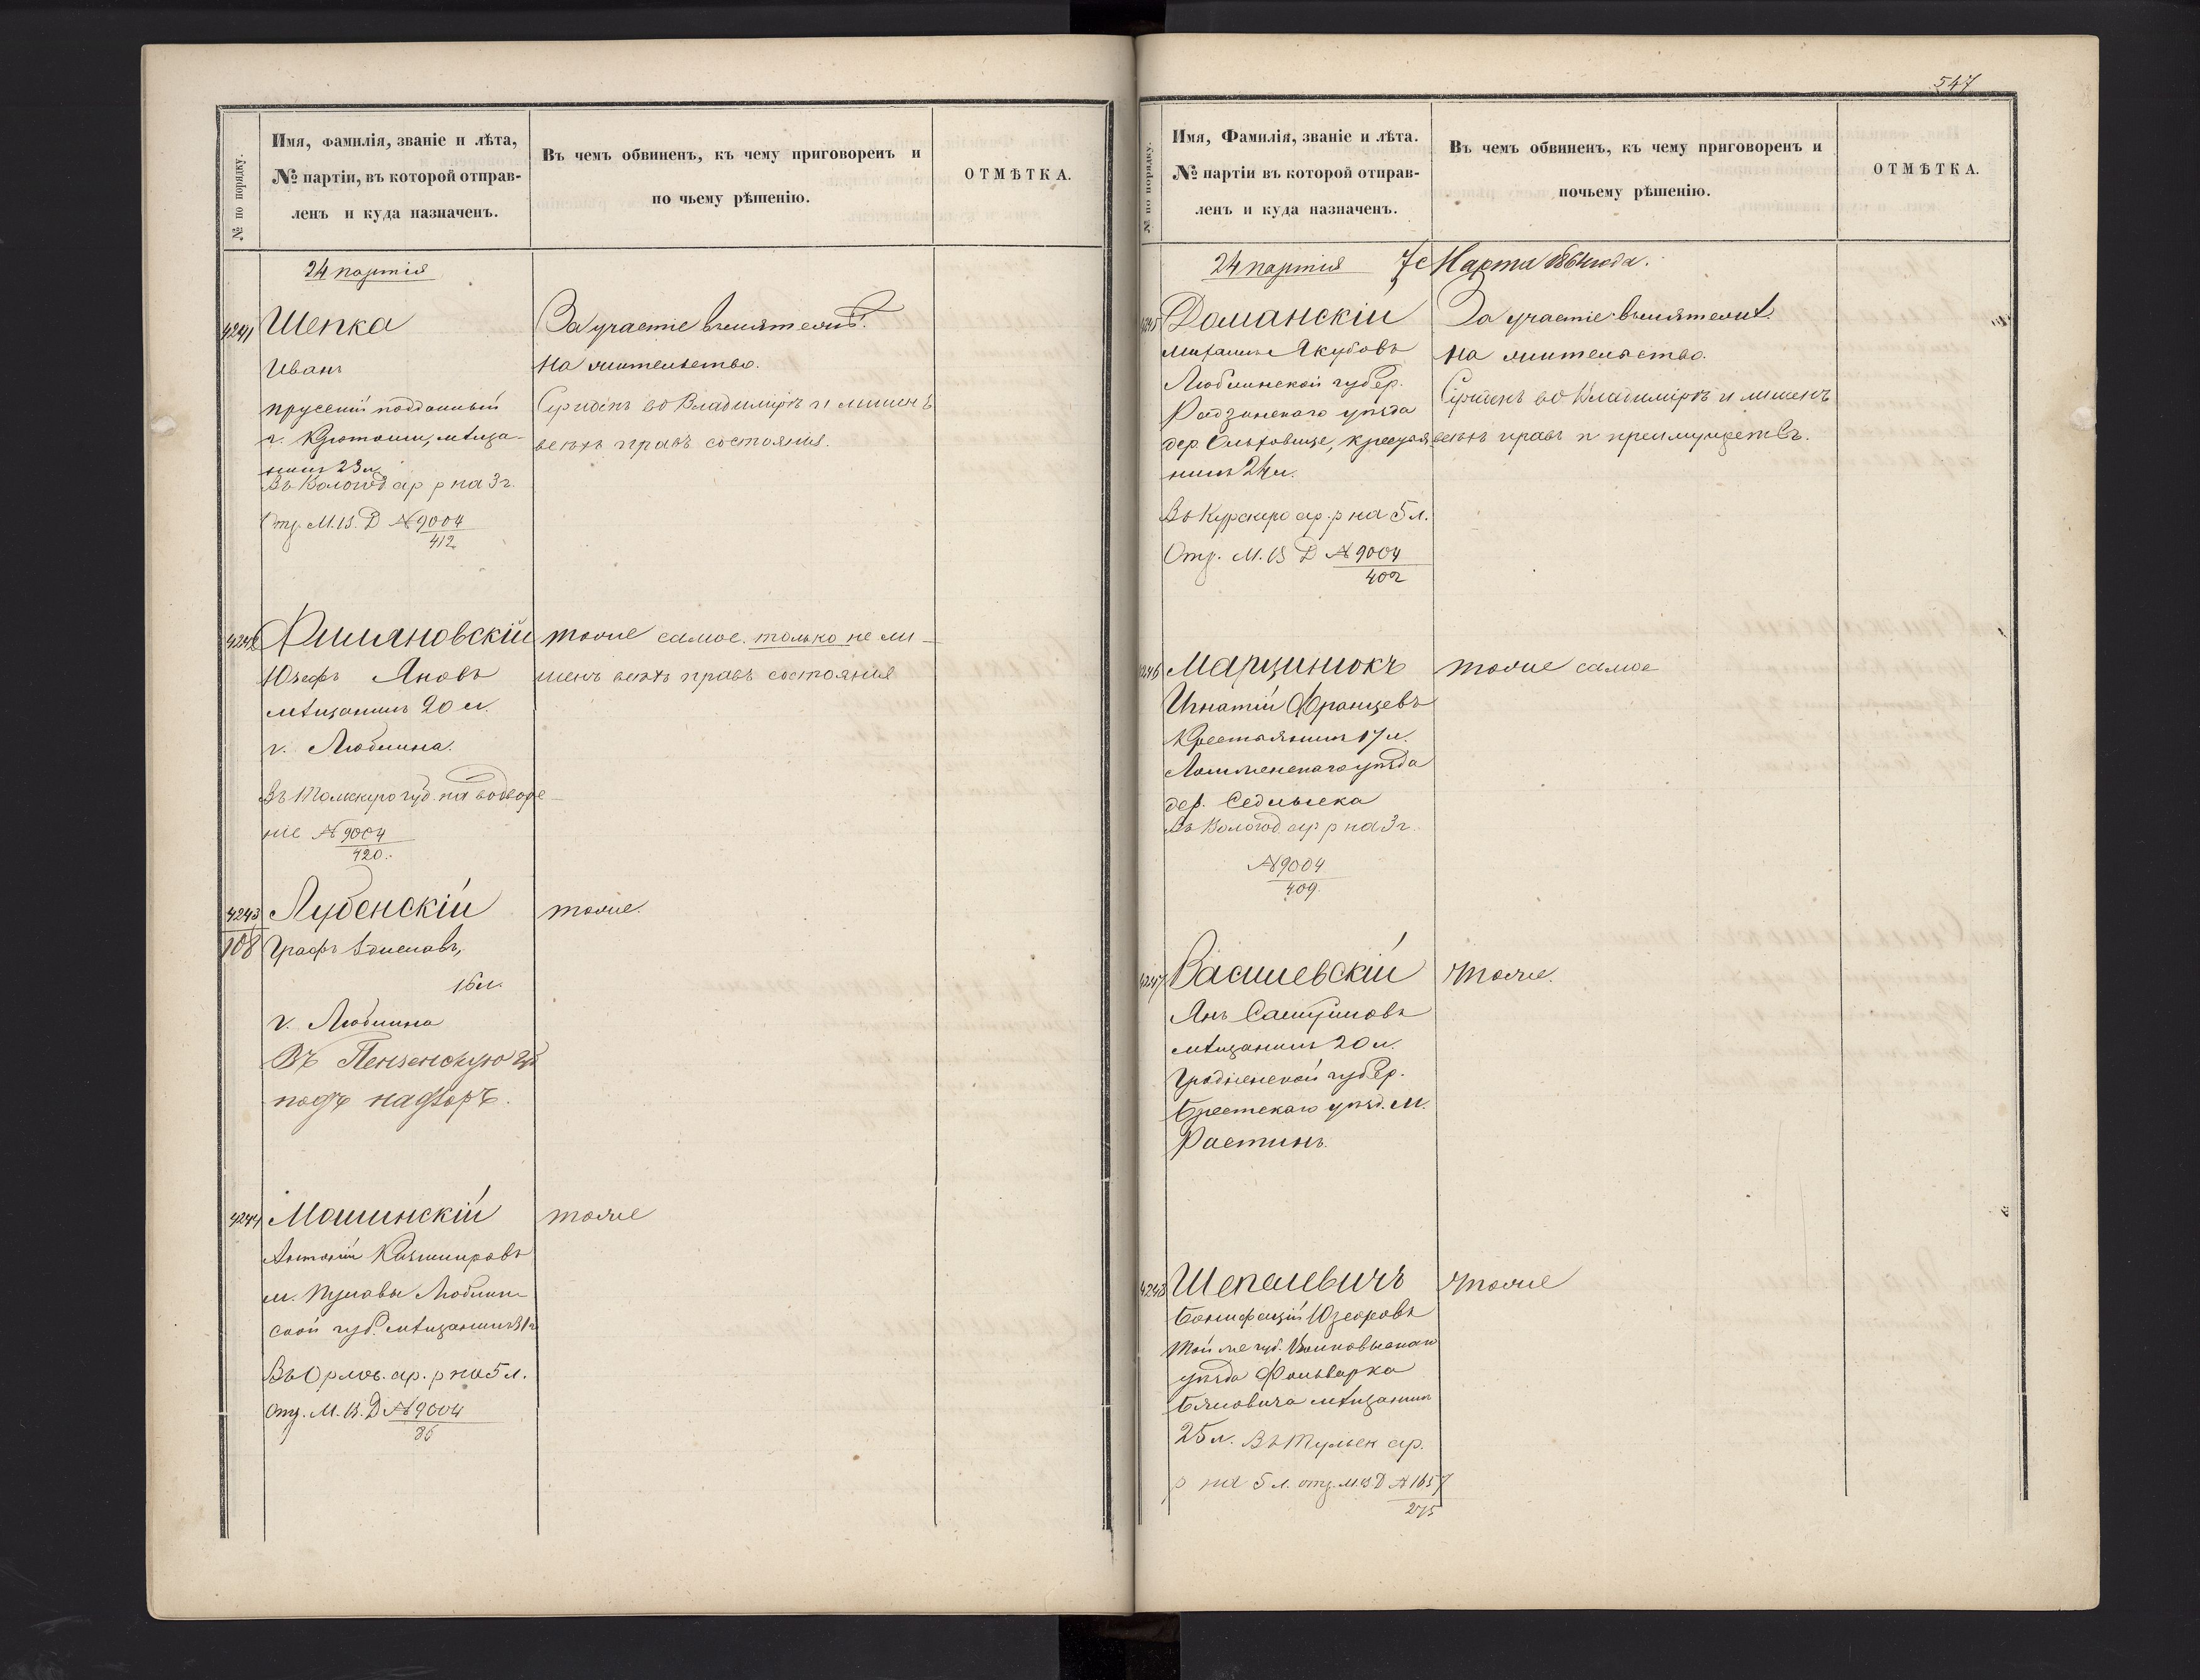 № по порядку.
Имя, фамилія, званіе и лѣта,
№ партіи, въ которой отправ-
ленъ и куда назначенъ.
Въ чемъ обвиненъ, къ чему приговоренъ и
по чьему рѣшенію.
ОТМѢТКА.
24 партія
4241 Шепка
Иванъ
прусскій подданный
мѣща-
нинъ 23 л.
Въ Вологод ар р на 3 г.
Отз. М. В. Д № 9004
412
За участіе въ мятежѣ.
На жительство.
Сужденъ во Владимірѣ и лишенъ
всѣхъ правъ состоянія.
4242
Юзефъ Яновъ
мѣщанинъ 20 л.
г. Люблина.
Въ Томскую губ. на водворе-
ніе № 9004
420.
тоже самое. только не ли-
шенъ всѣхъ правъ состоянія
4243 Лубенскій
108 Графъ
16 л.
г. Люблина
Въ Пензенскую губ
подъ надзоръ.
тоже.
4244 Машинскій
Антоній Казимировъ
м. Пулавы Люблин-
ской губ. мѣщанинъ 31 г
Въ Орлов. ар. р на 5 л.
Отз. М. В. Д № 9004
86
тоже
547
№ по порядку.
Имя, Фамилія, званіе и лѣта.
№ партіи въ которой отправ-
ленъ и куда назначенъ.
Въ чемъ обвиненъ, къ чему приговоренъ и
почьему рѣшенію.
ОТМѢТКА.
24 партія 7е Марта 1864 года.
4245 Доманскій
Якубовъ
Люблинской губер.
Радзинскаго уѣзда
дер. Ольховце, крестья-
нинъ 24 л.
Въ Курскую ар. р на 5 л.
Отз. М. В Д № 9004
402
За участіе въ мятежѣ.
На жительство.
Сужденъ во Владимірѣ и лишенъ
всѣхъ правъ и преимуществъ.
4246 Марцинюкъ
Игнатій Францевъ
Крестьянинъ 17 л.
уѣзда
дер. Седлиска
Въ Вологод ар р на 3 г.
№ 9004
409.
тоже самое
4247 Василевскій
Янъ
мѣщанинъ 20 л.
Гродненской губер.
Брестскаго уѣзд. м.
тоже.
4248 Шепалевичъ
Бонифацій Юзефовъ
Той же губ. Волковыскаго
уѣзда Фольварка
мѣщанинъ
25 л. Въ Тульск ар.
р на 5 л. отз. М. В Д № 1657
275
тоже